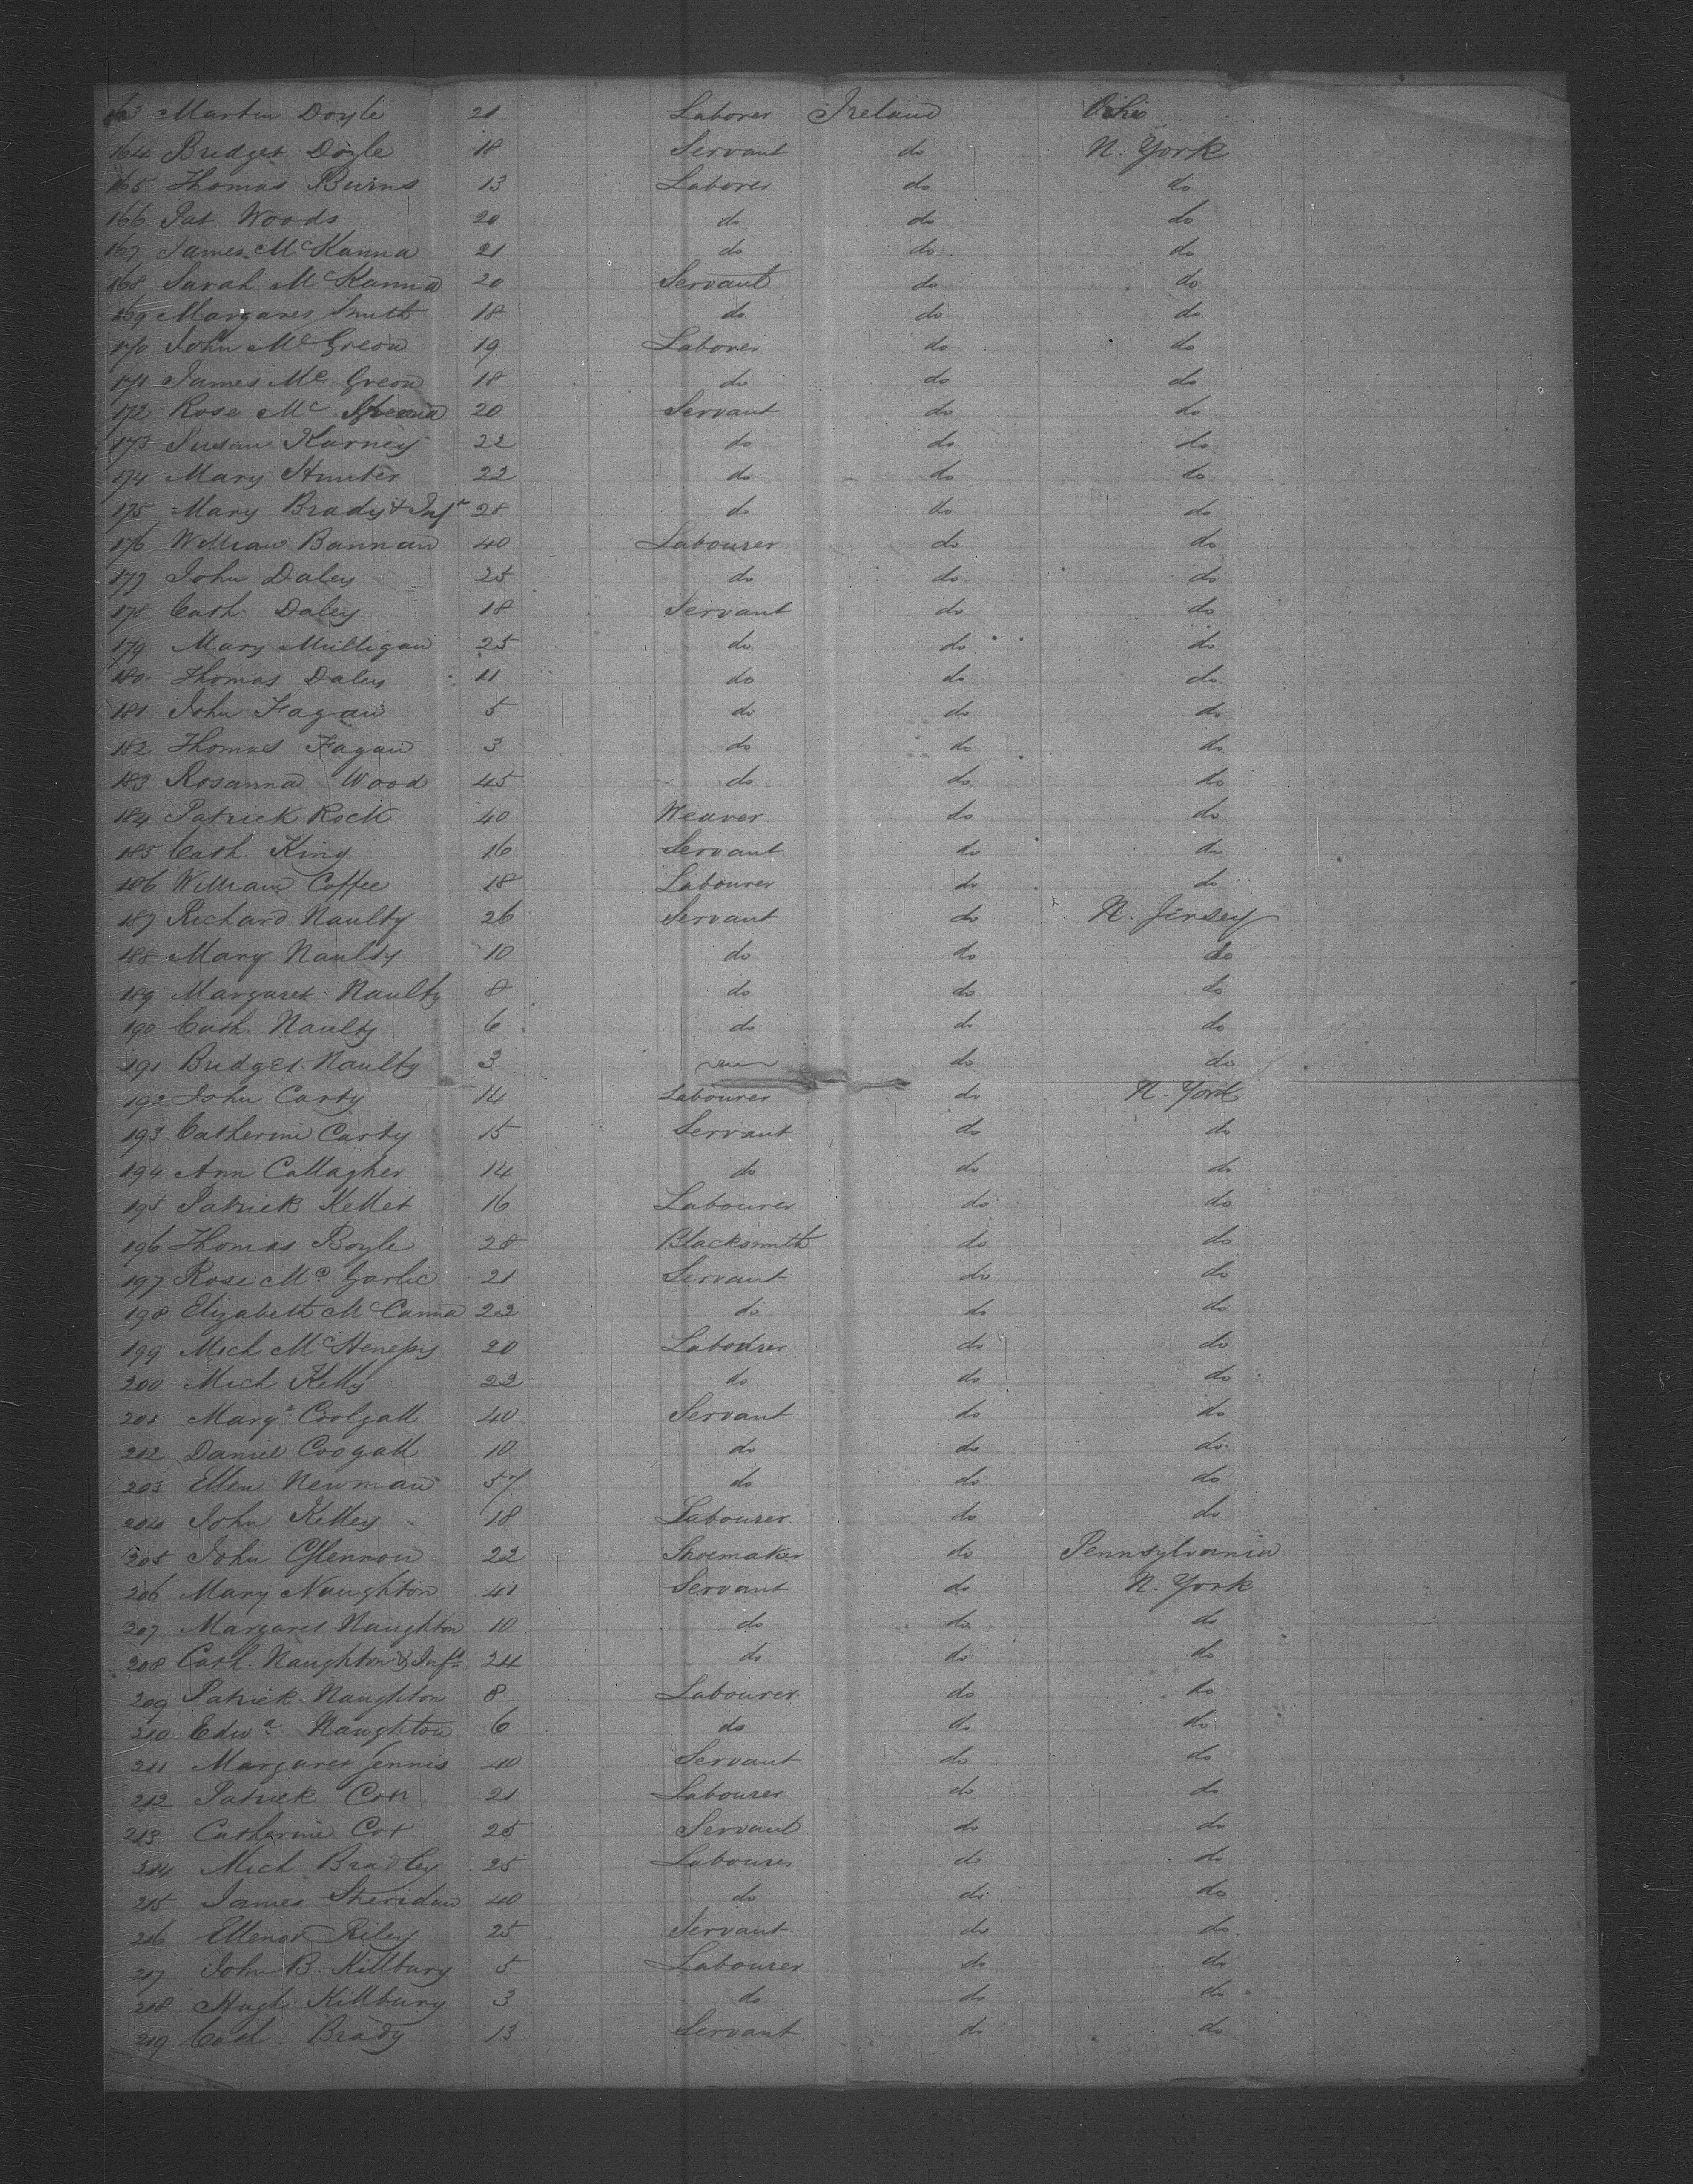 163 Martin Doyle 21 Laborer Ireland Ohio
164 Bridget Doyle 18 Servant do N. York
165 Thomas Burns 13 Laborer do do
166 Pat Woods 20 do do do
167 James McKanna 21 do do do
168 Sarah McKanna 20 Servant do do
169 Margaret Smith 18 do do do
170 John Mc Greow 19 Laborer do do
171 James Mc Greow 18 do do do
172 Rose Mc 20 Servant do do
173 Susan Karney 22 do do do
174 Mary Hunter 22 do do do
175 Mary Brady & Inft 28 do do do
176 William Bannan 40 Labourer do do
177 John Daley 25 do do do
178 Cath. Daley 18 Servant do do
179 Mary Mulligan 25 do do do
180 Thomas Daley 11 do do do
181 John Fagan 5 do do do
182 Thomas Fagan 3 do do do
183 Rosanna Wood 45 do do do
184 Patrick Rock 40 Weaver do do
185 Cath. King 16 Servant do do
186 William Coffee 18 Labourer do do
187 Richard Naulty 26 Servant do N. Jersey
188 Mary Naulty 10 do do do
189 Margaret Naulty 8 do do do
190 Cath. Naulty 6 do do do
191 Bridget Naulty 3 do do
192 John Carty 14 Labourer do N. York
193 Catherine Carty 15 Servant do do
194 Ann Callagher 14 do do do
195 Patrick Kellet 16 Labourer do do
196 Thomas Boyle 28 Blacksmith do do
197 Rose Mc Garlic 21 Servant do do
198 Elizabeth McCanna 22 do do do
199 Mich 20 Labourer do do
200 Mich Kelly 22 do do do
201 Margt Coolgall 40 Servant do do
202 Daniel Coogall 10 do do do
203 Ellen Newman 57 do do do
204 John Kelley 18 Labourer do do
205 John Glennon 22 Shoemaker do Pennsylvania
206 Mary Naughton 41 Servant do N. York
207 Margaret Naughton 10 do do do
208 Cath. Naughton & Inft 24 do do do
209 Patrick Naughton 8 Labourer do do
210 Edwd Naughton 6 do do do
211 Margaret Jennis 40 Servant do do
212 Patrick Cox 21 Labourer do do
213 Catherine Cox 25 Servant do do
214 Mich Bradley 25 Labourer do do
215 James Sheridan 40 do do do
216 Ellenor Riley 25 Servant do do
217 John B. Killbury 5 Labourer do do
218 Hugh Killbury 3 do do do
219 Cath. Brady 13 Servant do do